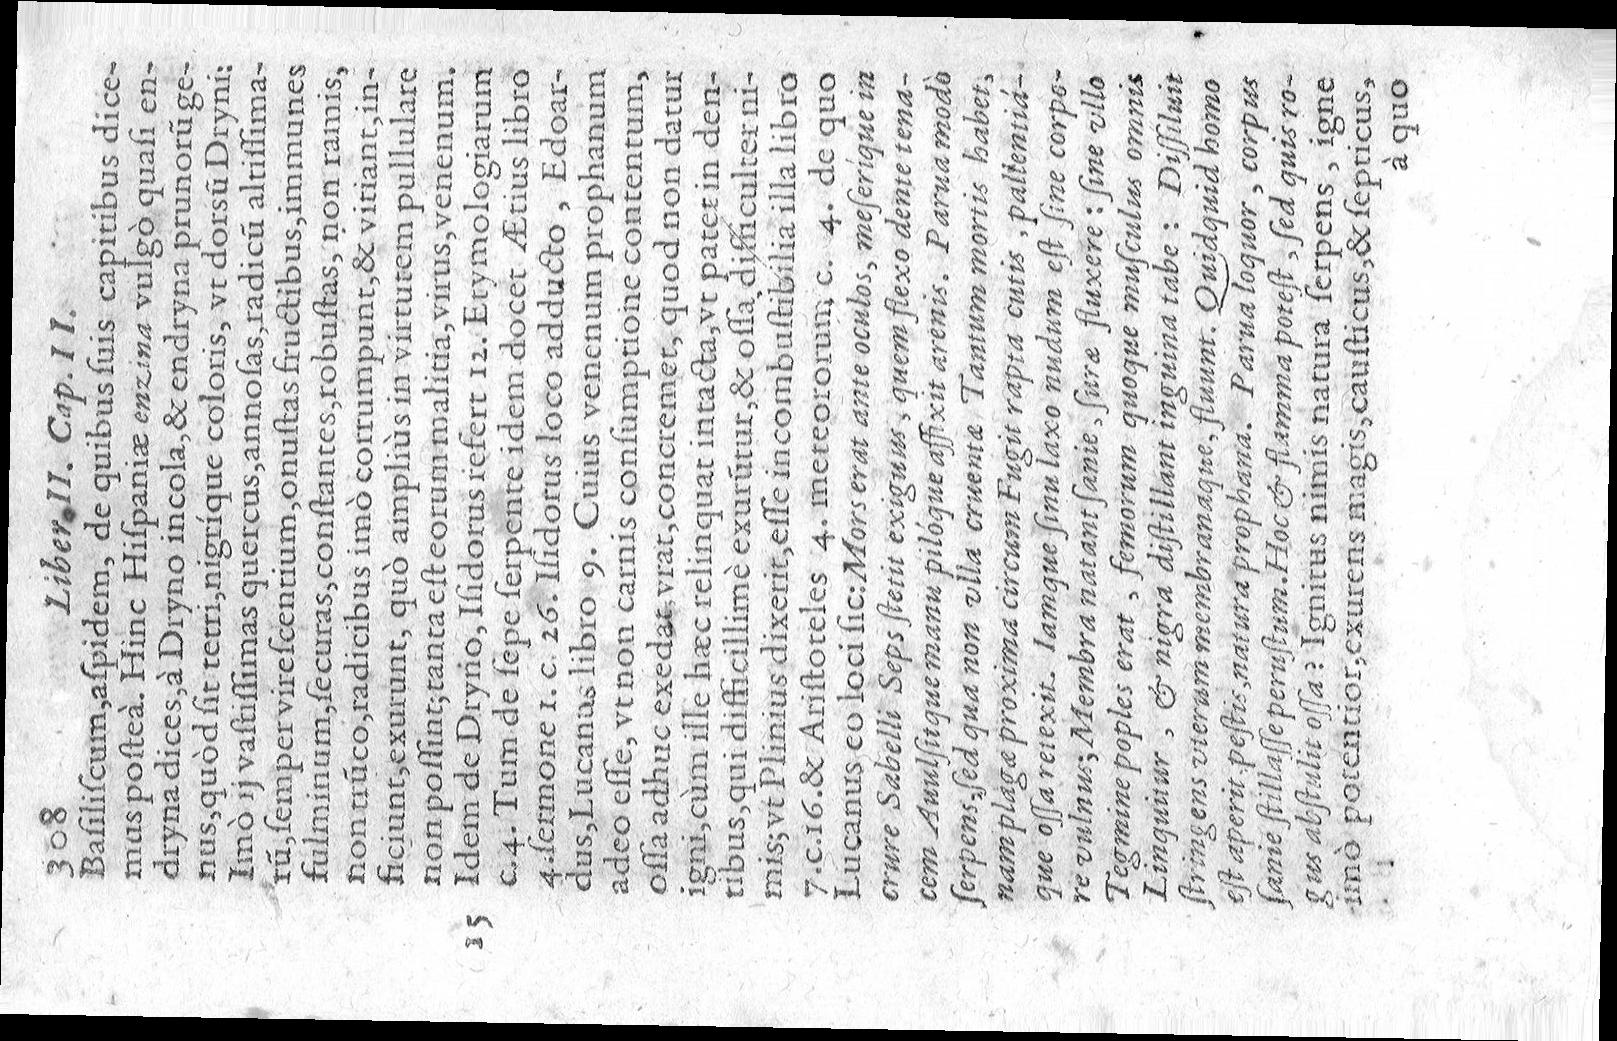 308 Liber II. Cap. II.
Baſiliſcum,aſpidem, de quibus ſuis capitibus dice-
mus poſteà. Hinc Hiſpaniæ enzina vulgò quaſi en-
dryna dices,à Dryno incola,& endryna prunorũ ge-
nus,quòd ſit tetri,nigríque coloris, vt dorsũ Dryni:
Imò ij vaſtiſſimas quercus,annoſas,radicũ altiſſima-
rũ,ſemper vireſcentium,onuſtas fructibus,immunes
fulminum,ſecuras,conſtantes,robuſtas, non ramis,
non trũco,radicibus imò corrumpunt,& vitiant,in-
ficiunt,exurunt, quò ampliùs in virtutem pullulare
non poſſint;tanta eſt eorum malitia,virus,venenum.
15 Idem de Dryno, Iſidorus refert 12. Etymologiarum
c.4. Tum de ſepe ſerpente idem docet Ætius libro
4.ſermone 1. c. 26. Iſidorus loco adducto , Edoar-
dus,Lucanus libro 9. Cuius venenum prophanum
adeo eſſe, vt non carnis conſumptione contentum,
oſſa adhuc exedat,vrat,concremet, quod non datur
igni,cùm ille hæc relinquat intacta,vt patet in den-
tibus,qui difficillimè exurũtur,& oſſa,difficulter ni-
mis;vt Plinius dixerit,eſſe incombuſtibilia illa libro
7.c.16.& Ariſtoteles 4. meteororum, c. 4. de quo
Lucanus eo loci ſic: Mors erat ante oculos, meſeríque in
crure Sabelli Seps ſtetit exiguus, quem flexo dente tena-
cem Auulſitque manu pilóque affixit arenis. Parua modò
ſerpens,ſed qua non vlla cruentæ Tantum mortis habet,
nam plagæ proxima circum Fugit rapta cutis , palientiá-
que oſſa retexit. Iamque ſinu laxo nudum eſt ſine corpo-
re vulnus; Membra natant ſanie, ſuræ fluxere : ſine vllo
Tegmine poples erat , femorum quoque muſculus omnis
Linquitur , & nigra diſtillant inguina tabe : Diſſiluit
ſtringens vterum membranaque, fluunt. Quidquid homo
eſt aperit peſtis,natura prophana. Parua loquor, corpus
ſanie ſtillaſſe peruſtum. Hoc & flamma poteſt, ſed quis ro-
gus abſtulit oſſa? Ignitus nimis natura ſerpens , igne
imò potentior,exurens magis,cauſticus,& ſepticus,
à quo